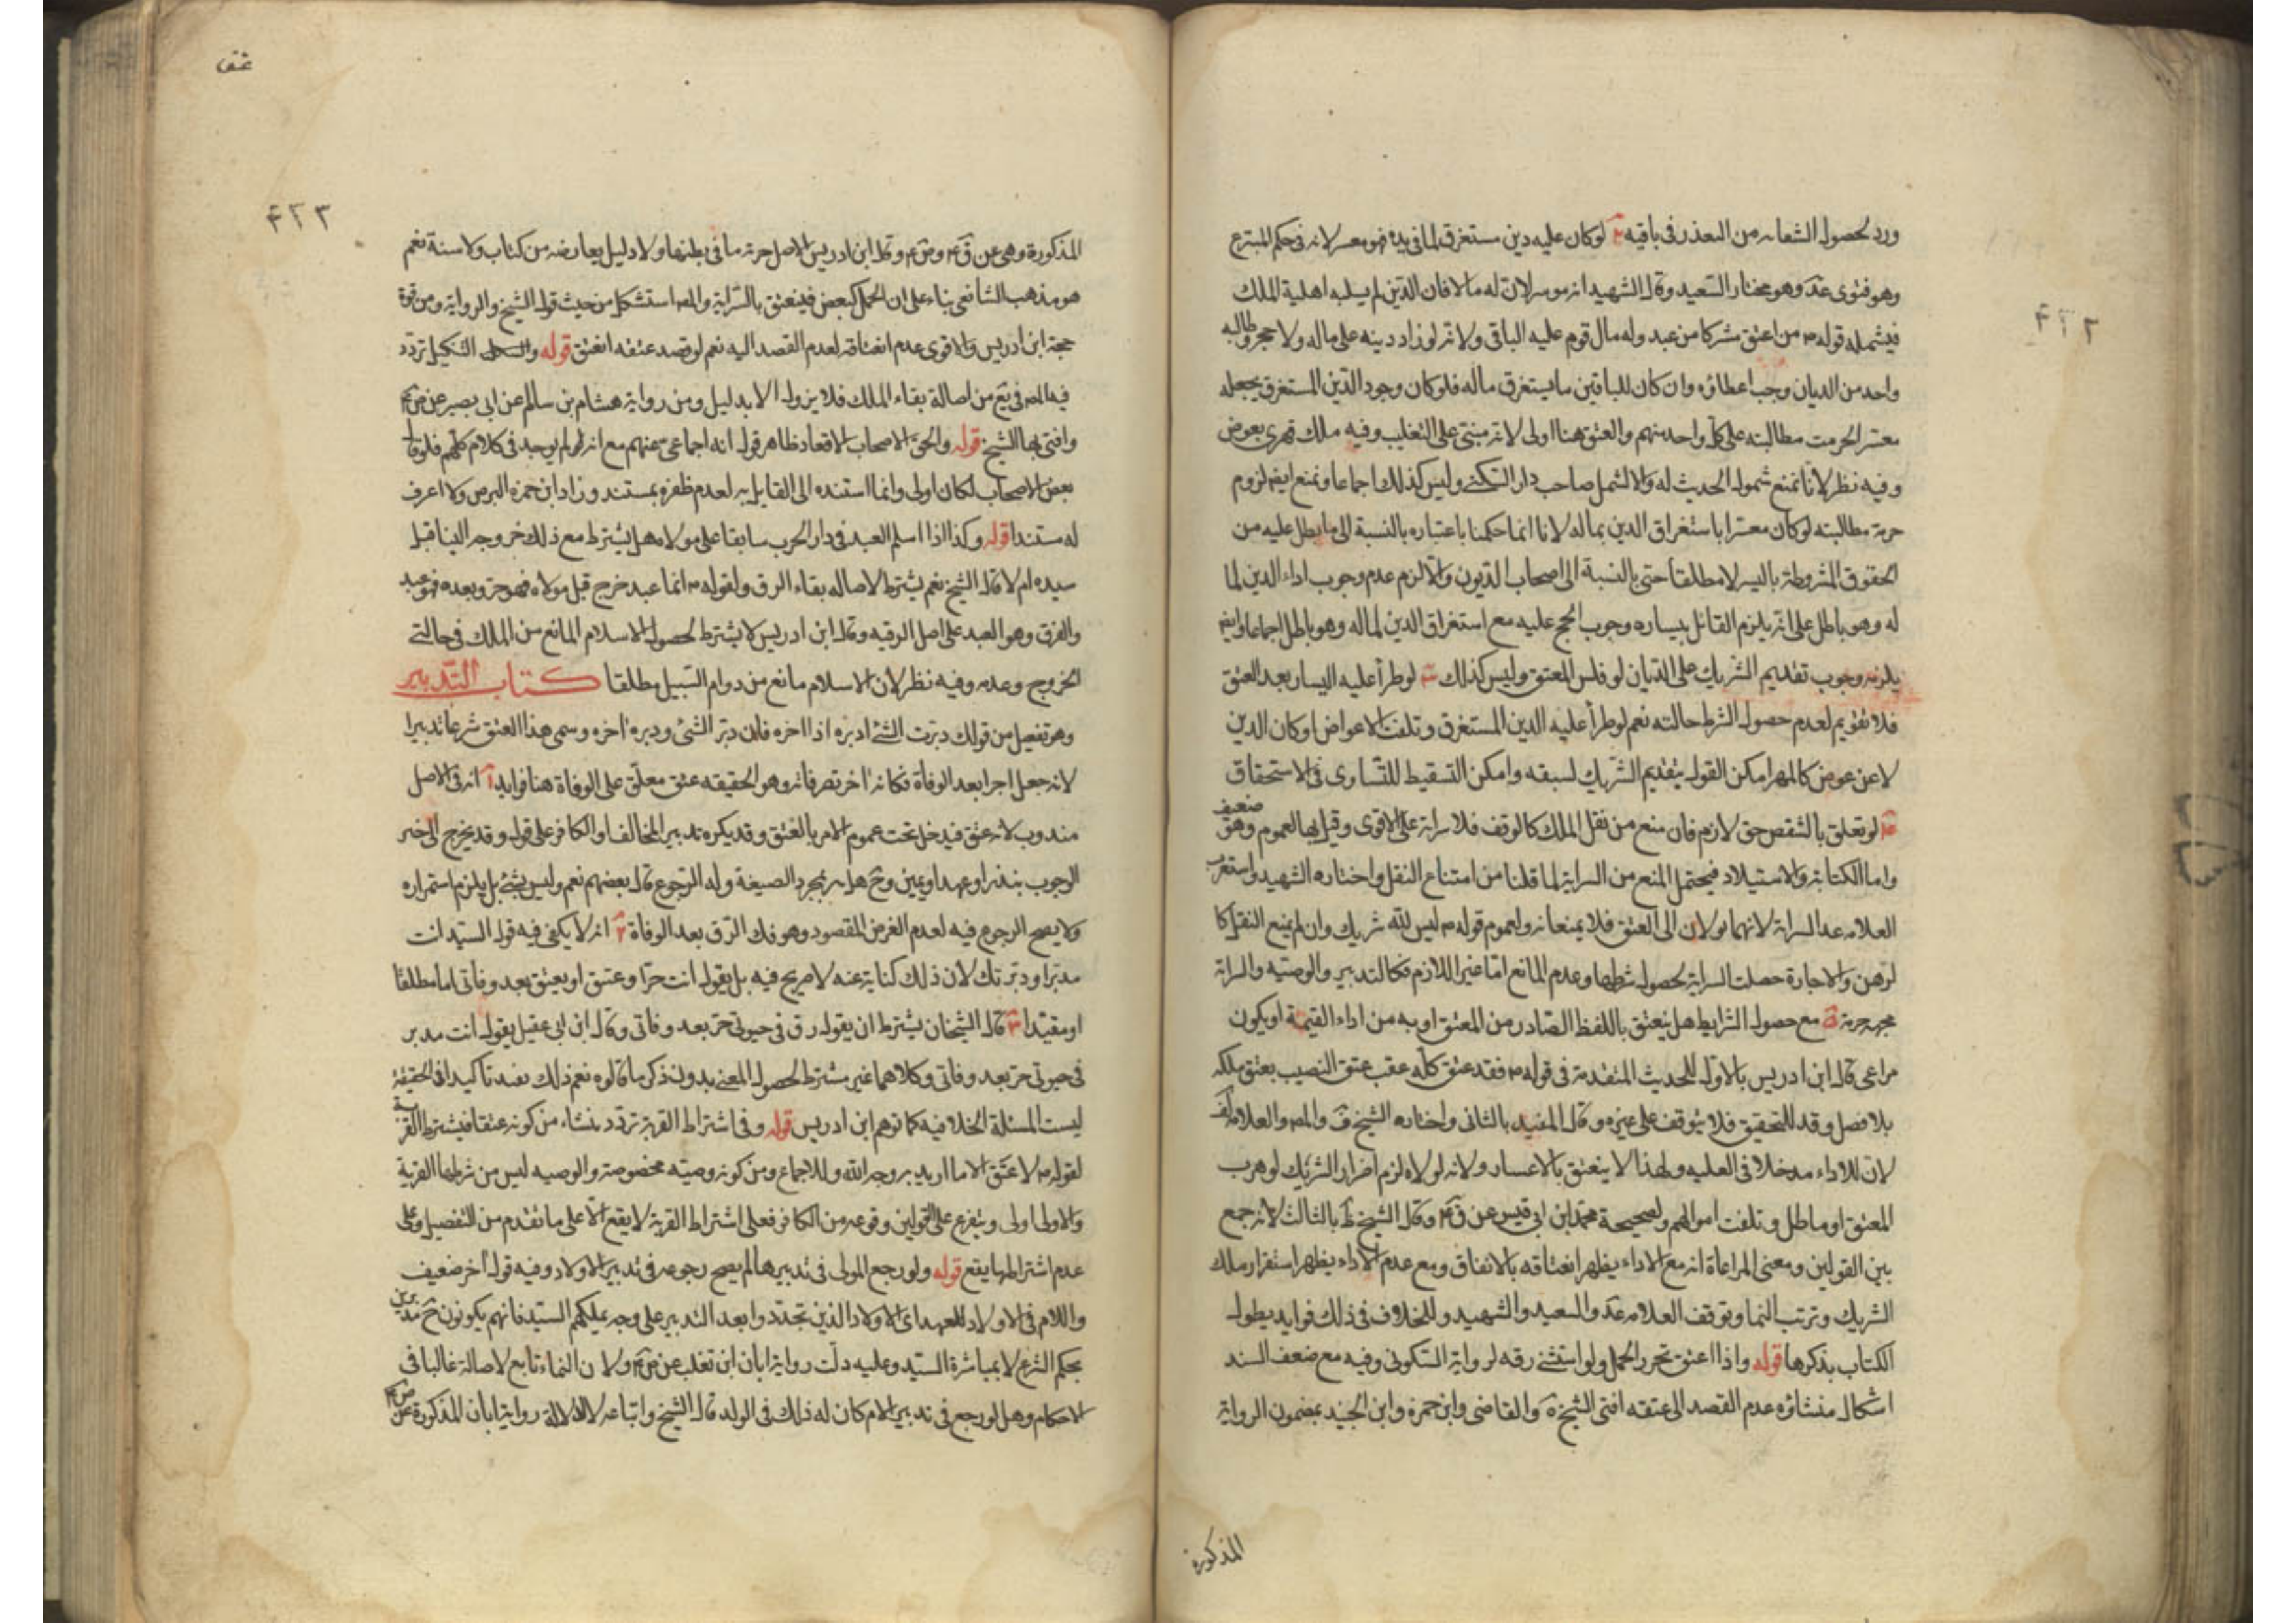 ورد لحصول الشعار من التعذر في باقيه ٢ لو كان عليه دين مستغرق لما في يده فهو معسر لانه في حكم المتبرع
وهو فتوى عد وهو مختار السعيد وقال الشهيد انه موسر لان له مالا فان الدين لم يسلبه اهلية الملك
فيشمله قوله ٣ من اعتق شركا من عبد وله مال قوم عليه الباقي ولانه لو زاد دينه على ماله ولا حجر وطالبه
واحد من الديان وجب اعطاؤه وان كان للباقين ما يستغرق ماله فلو كان وجود الدين المستغرق يجعله
معسرا لحرمت مطالبته على كل واحد منهم والعتق هنا اولى لانه مبني على التغليب وفيه ملك قهري بعوض
وفيه نظر لانا نمنع شمول الحديث له والا لشمل صاحب دار السكنى وليس كذلك اجماعا ونمنع ايضا لزوم
حرمة مطالبته لو كان معسرا باستغراق الدين بماله لانا انما حكمنا باعتباره بالنسبة الى ما يطل عليه من
الحقوق المشروطة باليسر لا مطلقا حتى بالنسبة الى اصحاب الديون والا لزم عدم وجوب اداء الدين لما
له وهو باطل على انه يلزم القائل بيساره وجوب الحج عليه مع استغراق الدين لماله وهو باطل اجماعا وايضا
يلزمه وجوب تقديم الشريك على الديان لو فلس المعتق وليس كذلك ٣ لو طرأ عليه اليسار بعد العتق
فلا تقويم لعدم حصول الشرط حالته نعم لو طرأ عليه الدين المستغرق وتلفت الاعواض او كان الدين
لا عن عوض كالمهر امكن القول بتقديم الشريك لسبقه وامكن التسقيط للتساوى في الاستحقاق
٤ لو تعلق بالشقص حق لازم فان منع من نقل الملك كالوقف فلا سراية على الاقوى وقيل بها لعموم وهو ضعيف
واما الكتابة والاستيلاد فيحتمل المنع من السراية لما قلنا من امتناع النقل واختاره الشهيد واستقرب
العلامه عد السراية لانهما يولان الى العتق فلا يمنعانه ولعموم قوله ٣ ليس لله شريك وان لم يمنع النقل كا
لرهن والاجارة حصلت السراية لحصول شرطها وعدم المانع اما غير اللازم فكالتدبير والوصيه والسراية
٥ مع حصول الشرايط هل ينعتق باللفظ الصادر من المعتق او به من اداء القيمة او يكون
مراعى قال ابن ادريس بالاول للحديث المتقدمة في قوله ٣ فقد عتق كله عقب عتق النصيب بعتق ملكه
بلا فصل وقد للتحقيق فلا يتوقف على غيره وقال المفيد بالثاني واختاره الشيخ ف والمص والعلامه
لان للاداء مدخلا في العليه ولهذا لا ينعتق بالاعسار ولانه لولاه لزم اضرار الشريك لو هرب
المعتق او ماطل وتلفت اموالهم ولصحيحة محمد ابن ابي قيس عن ق ع وقال الشيخ ط بالثالث لانه جمع
بين القولين ومعنى المراعاة انه مع الاداء يظهر انعتاقه بالاتفاق ومع عدم الاداء يظهر استقرار ملك
الشريك وترتب النما وتوقف العلامه عد والسعيد والشهيد وللخلاف في ذلك فوايد يطول
الكتاب بذكرها قوله واذا اعتق تحرر الحمل ولو استثنى رقه لرواية السكونى وفيه مع ضعف السند
اشكال منشاؤه عدم القصد الى عتقه افتى الشيخ يه والقاضى وابن حمزه وابن الجنيد بمضمون الرواية
المذكورة
٤٢٢
عتق
٤٢٣
المذكورة وهى عن ق ع وص ع وقال ابن ادريس الاصل حرية ما في بطنها ولا دليل يعارضه من كتاب ولا سنة نعم
هو مذهب الشافعى بناء على ان الحمل كبعض فينعتق بالسراية والمص استشكل من حيث قول الشيخ والرواية ومن قوة
حجة ابن ادريس والاقوى عدم انعتاقه لعدم القصد اليه نعم لو قصد عتقه انعتق قوله و التنكيل تردد
فيه المص في يع من اصالة بقاء الملك فلا يزول الا بدليل ومن رواية هشام بن سالم عن ابي بصير عن ص ع
وافتى بها الشيخ قوله والحق الاصحاب الاقعاد ظاهر قوله انه اجماعى عنهم مع انه لو لم يوجد في كلام كلهم فلو قال
بعض الاصحاب لكان اولى وانما استنده الى القايل به لعدم ظفره بمستند وزاد ابن حمزه البرص ولا اعرف
له مستندا قوله وكذا اذا اسلم العبد في دار الحرب سابقا على مولاه هل يشترط مع ذلك خروجه الينا قبل
سيده ام لا قال الشيخ نعم يشترط لاصاله بقاء الرق ولقوله ٣ انما عبد خرج قبل مولاه فهو حر وبعده فهو عبد
والفرق وهو العبد على اصل الرقيه وقال ابن ادريس لا يشترط لحصول الاسلام المانع من الملك في حالتي
الخروج وعدمه وفيه نظر لان الاسلام مانع من دوام السبيل مطلقا كتاب التدبير
وهو تفعيل من قولك دبرت الشئ ادبره اذا اخره فان دبر الشئ ودبره اخره وسمى هذا العتق شرعا تدبيرا
لانه جعل اجرا بعد الوفاة فكانه اخر تصرفاته وهو الحقيقه عتق معلق على الوفاة هنا فوايد ١ انه في الاصل
مندوب لانه عتق فيدخل تحت عموم الامر بالعتق وقد يكره تدبير المخالف او الكافر على قول وقد يخرج الى خبر
الوجوب بنذر او عهد او يمين وح هل يبر بمجرد الصيغة وله الرجوع قال بعضهم نعم وليس بشئ بل يلزم استمراره
ولا يصح الرجوع فيه لعدم الغرض المقصود وهو فك الرق بعد الوفاة ٢ انه لا يكفى فيه قول السيد انت
مدبر او دبرتك لان ذلك كناية عنه لا صريح فيه بل يقول انت حر او عتيق او يعتق بعد وفاتى اما مطلقا
او مقيدا ٣ قال الشيخان يشترط ان يقول رق في حيوتى حر بعد وفاتى وقال ابن ابي عقيل يقول انت مدبر
في حيوتى حر بعد وفاتى وكلاهما غير مشترط لحصول المعنى بدون ذكر ما قالوه نعم ذلك يفيد تأكيدا في الحقيقة
ليست المسئلة الخلافيه كما توهم ابن ادريس قوله وفي اشتراط القربة تردد ينشاء من كونه عتقا فيشترط القربة
لقوله ٣ لا عتق الا ما اريد به وجه الله وللاجماع ومن كونه وصيته مخصوصة والوصيه ليس من شرطها القربة
والاولى اولى ويتفرع على القولين وقوعه من الكافر فعلى اشتراط القربة لا يقع الا على ما تقدم من التفصيل وعلى
عدم اشتراطها يقع قوله ولو رجع المولى في تدبيرها لم يصح رجوعه في تدبير الاولاد وفيه قول اخر ضعيف
واللام في الاولاد للعهد اى الاولاد الذين تجددوا بعد التدبير على وجه يملكهم السيد فانهم يكونون ح مدبرين
بحكم الشرع لا بمباشرة السيد وعليه دلت رواية ابان ابن تغلب عن ص ع ولان النماء تابع لاصالة غالبا في
الاحكام وهل لو رجع في تدبير الام كان له ذلك في الولد قال الشيخ واتباعه لا لدلالة رواية ابان المذكورة عن ص ع